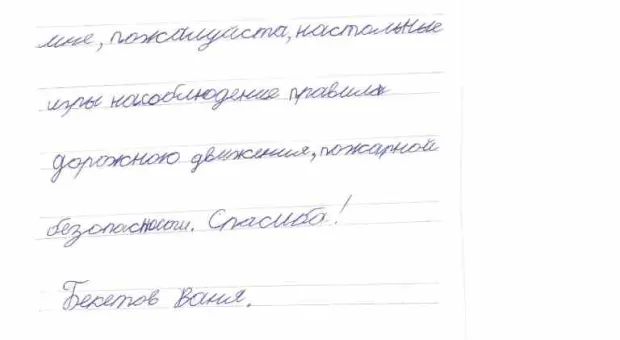 мне, пожалуйста, настольные
игры насоблюдение правила
дорожною движения, пожарной
безопасности. Спасибо!
Бекетов Ваня.